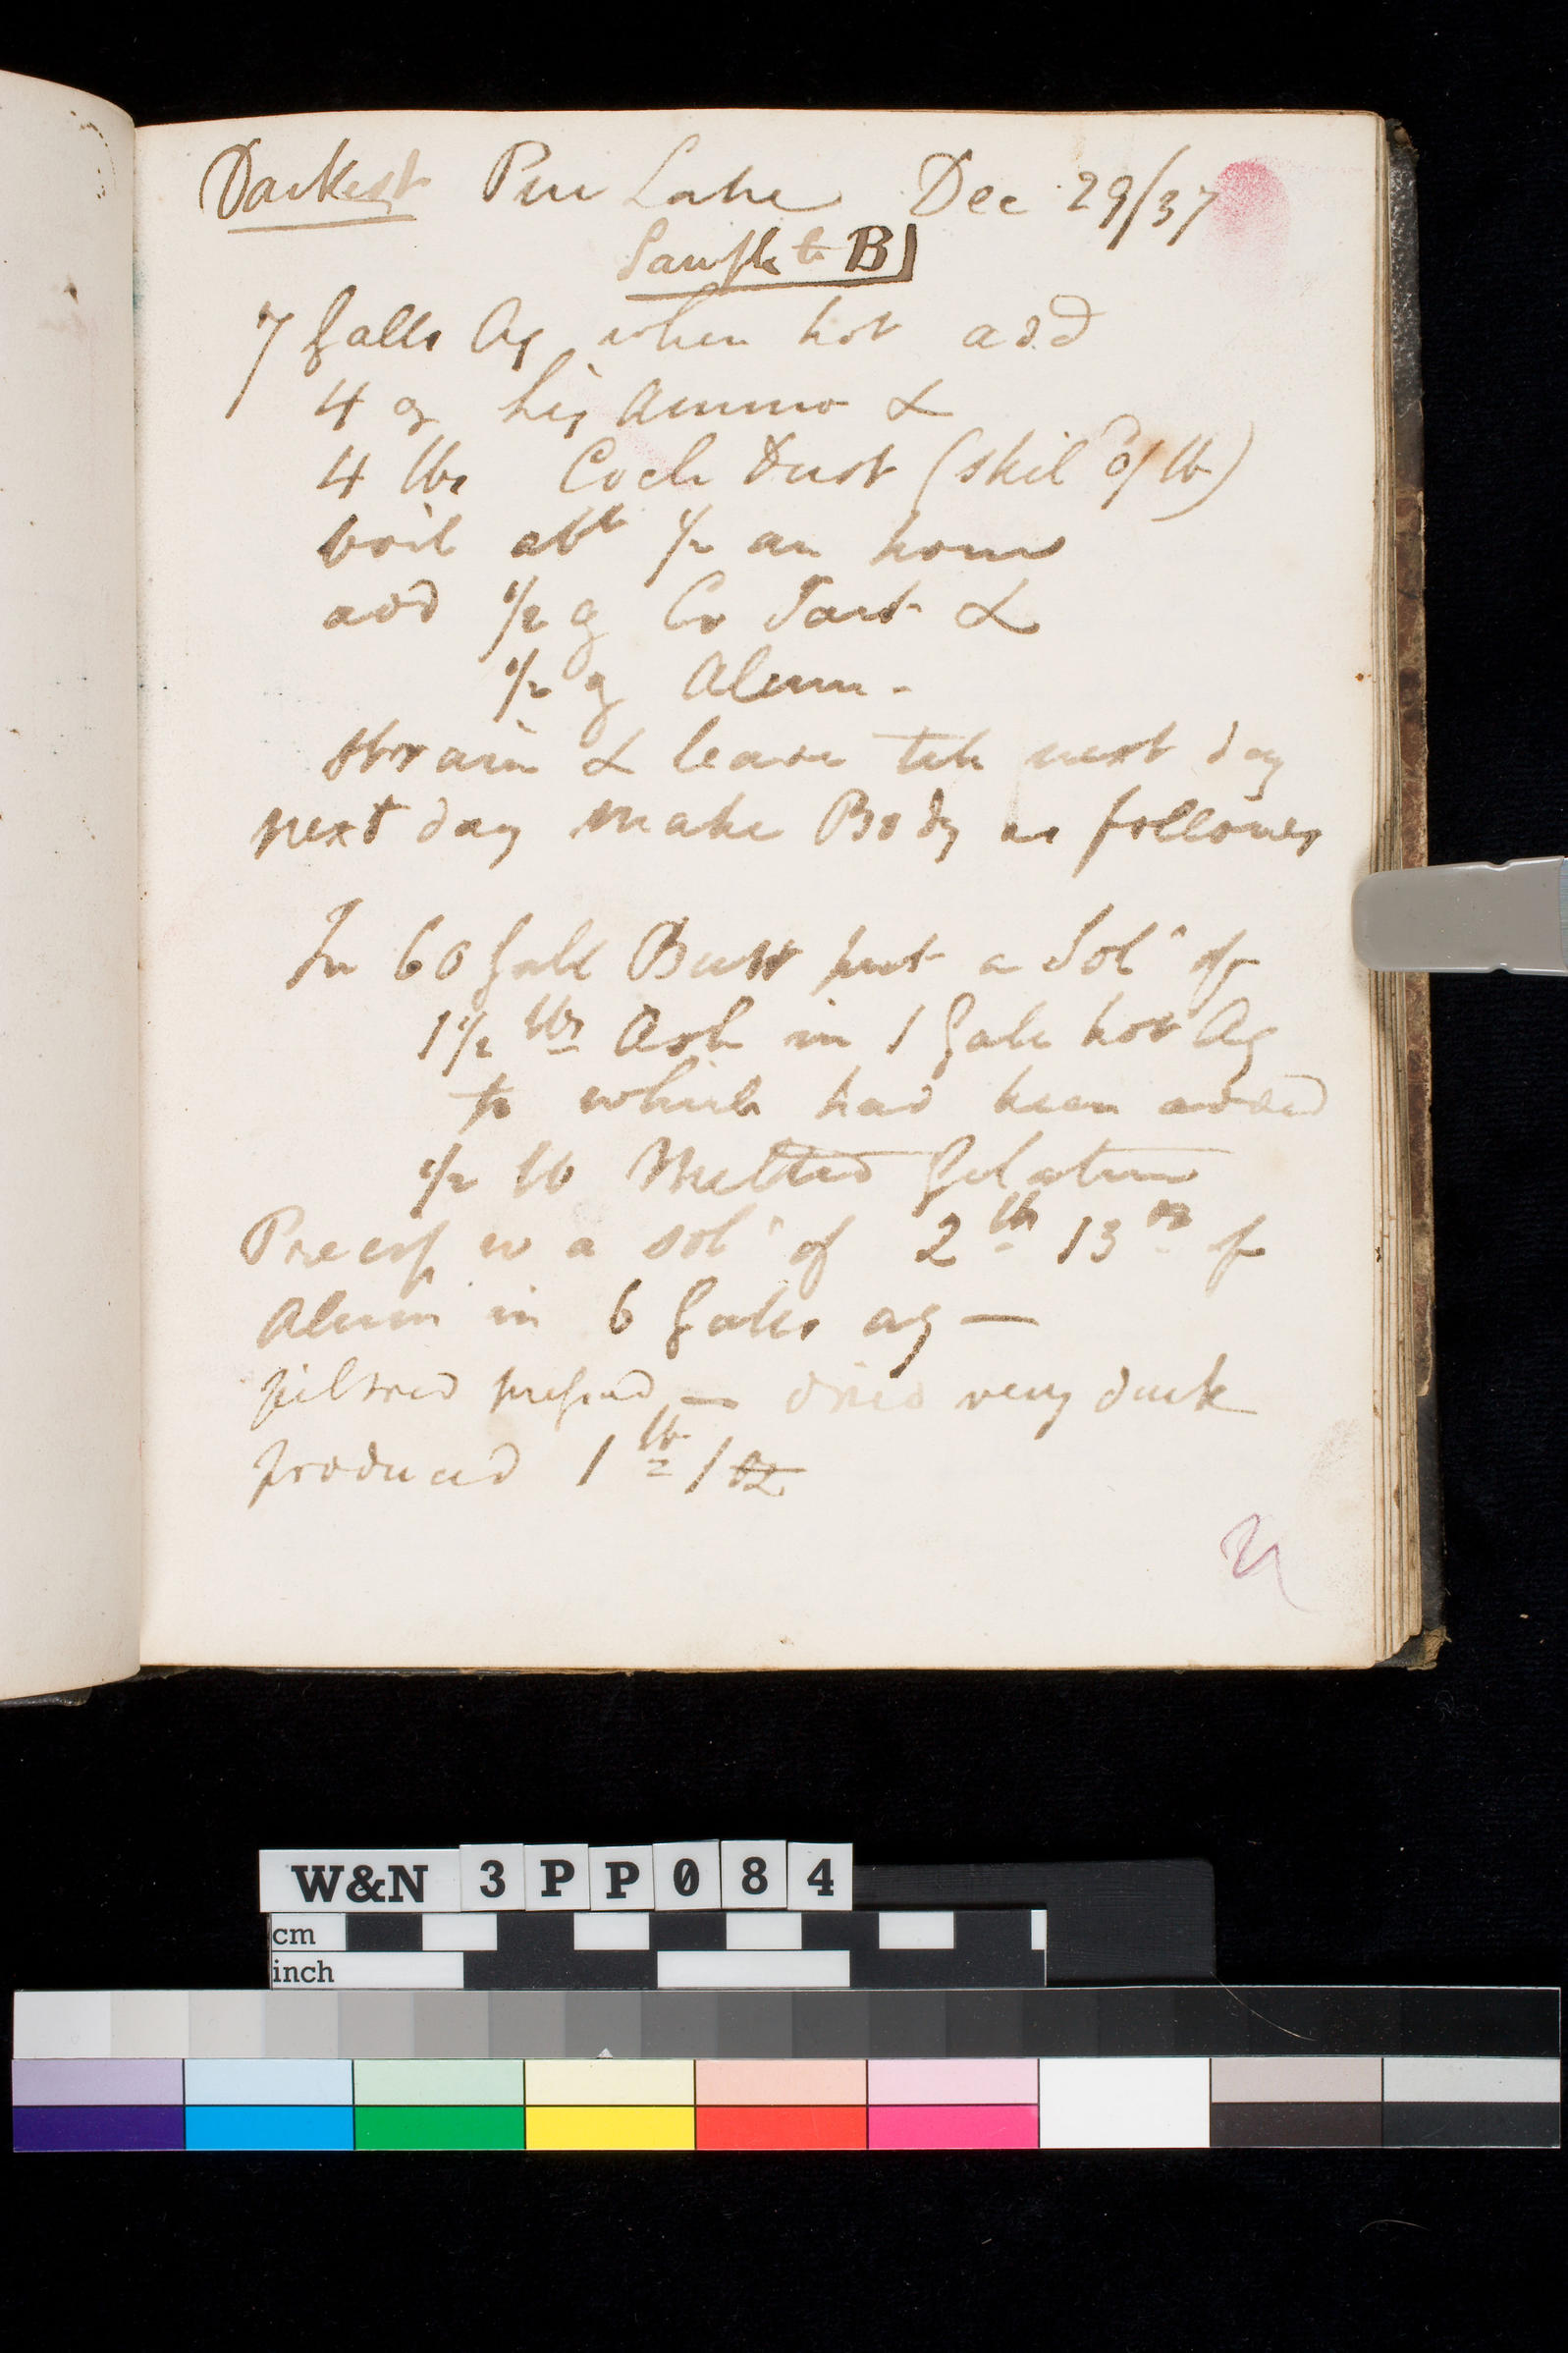 Darkest Pur Lake Dec 29/37
Sample to B]
7 Galls Aq when hot add
4 oz Liq Ammo &
4 lbs Coch Dust (shil of lb)
boil abt 1/2 an hour
add 1/2 oz Cr Tart &
1/2 oz Alum -
strain & leave till next day
next day make Body as follows
In 60 Gall Butt put a Soln of
1 1/2 lbs Ash in 1 Gall hot Aq
to which had been added
1/2 lb Melted Gelatine
Precip w a soln of 2 lb 13 oz of
Alum in 6 Galls aq —
filtred presed — dried very dark
produced 1 lb 1 oz
W&N 3PP084
cm
inch